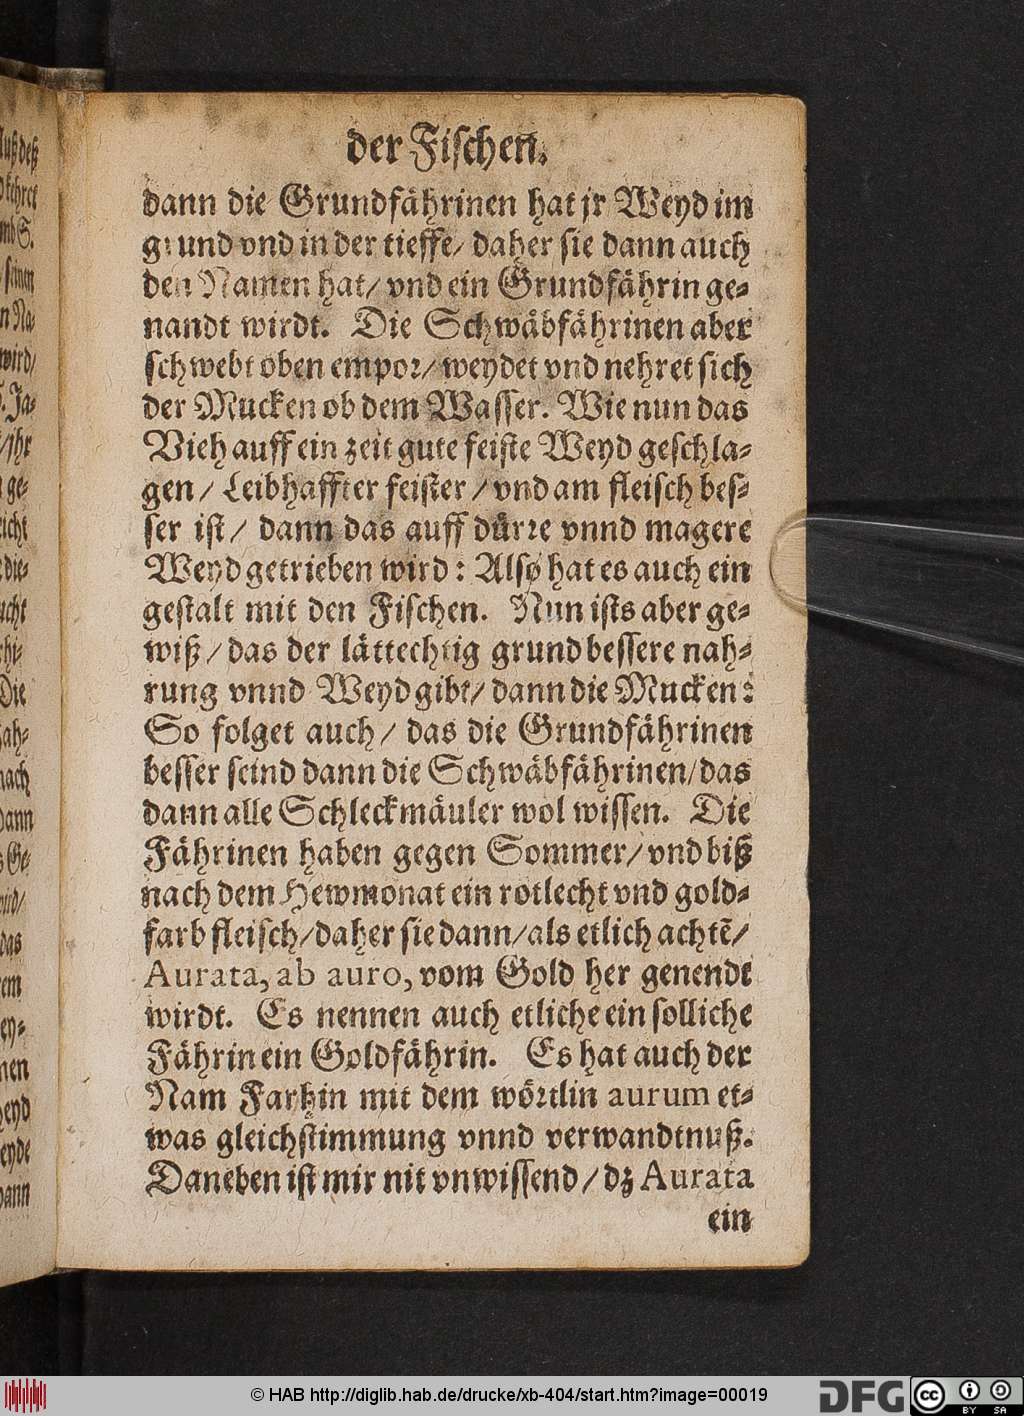 der Fischen.
dann die Grundfährinen hat jr Weyd im
grund vnd in der tieffe/ daher sie dann auch
den Namen hat/ vnd ein Grundfährin ge-
nandt wirdt. Die Schwäbfährinen aber
schwebt oben empor/ weydet vnd nehret sich
der Mucken ob dem Wasser. Wie nun das
Vieh auff ein zeit gute feiste Weyd geschla-
gen / Leibhaffter feister / vnd am fleisch bes-
ser ist / dann das auff dürre vnnd magere
Weyd getrieben wird : Also hat es auch ein
gestalt mit den Fischen. Nun ists aber ge-
wiß / das der lättechtig grund bessere nah-
rung vnnd Weyd gibt/ dann die Mucken:
So folget auch / das die Grundfährinen
besser seind dann die Schwäbfährinen/das
dann alle Schleckmäuler wol wissen. Die
Fährinen haben gegen Sommer/ vnd biß
nach dem Hewmonat ein rotlecht vnd gold-
farb fleisch/daher sie dann/als etlich achtē/
Aurata, ab auro, vom Gold her genendt
wirdt. Es nennen auch etliche ein solliche
Fährin ein Goldfährin. Es hat auch der
Nam Farhin mit dem wörtlin aurum et-
was gleichstimmung vnnd verwandtnuß.
Daneben ist mir nit vnwissend / dz Aurata
ein
auß deß
kehret
vnd S.
seinen
n Na-
wird/
S. Ja-
/jhr
n ge-
eicht
die-
ucht
rhi-
Die
ah-
nach
dann
s Ge-
das
em
ey-
nen
heyd
eyde
dann
© HAB http://diglib.hab.de/drucke/xb-404/start.htm?image=00019
DFG
cc
BY SA